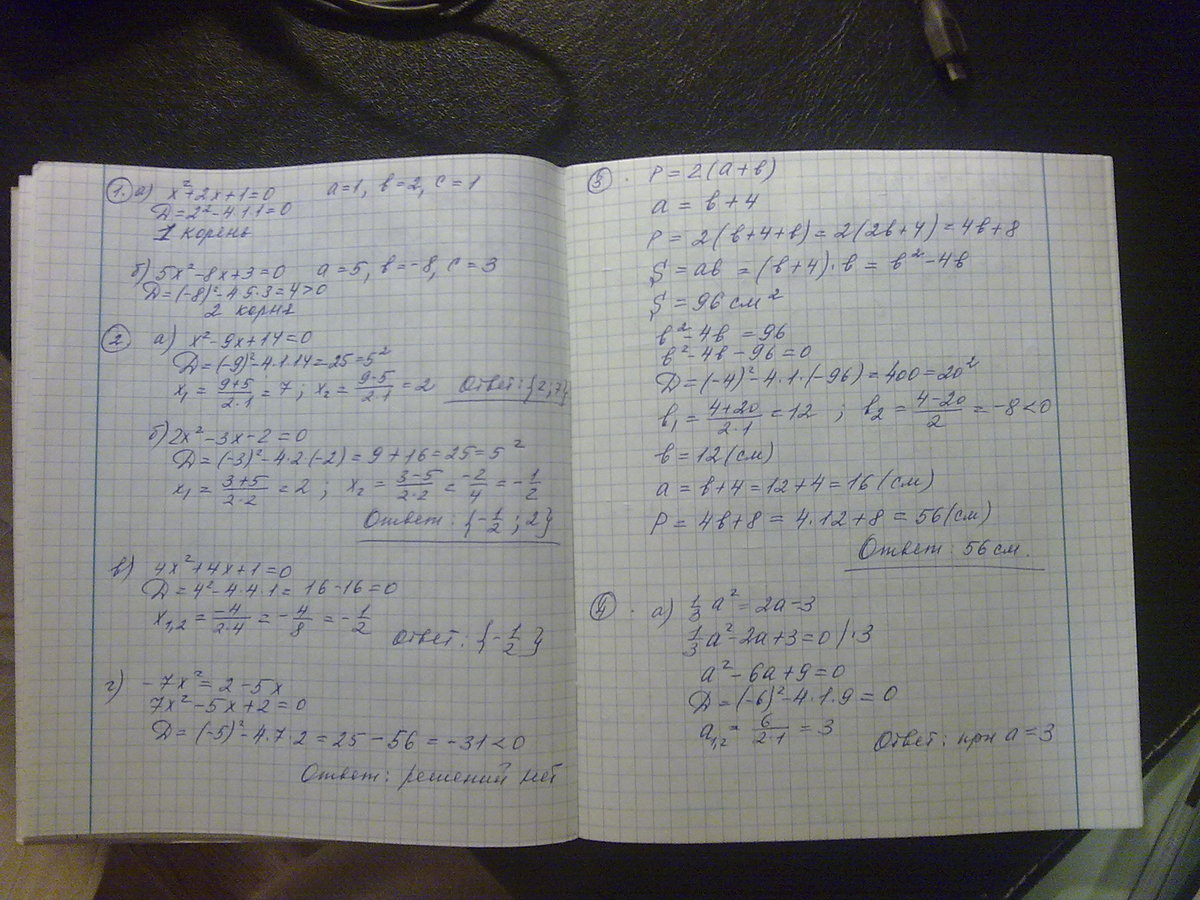 1. а) x²+2x+1=0 a=1, в=2, c=1
D=2²-4·1·1=0
1 корень
б) 5x²-8x+3=0 a=5, в=-8, c=3
D=(-8)²-4·5·3=4>0
2 корня
2 а) x²-9x+14=0
D=(-9)²-4·1·14=25=5²
x₁=(9+5)/(2·1)=7; x₂=(9-5)/(2·1)=2 Ответ: {2;7}
б) 2x²-3x-2=0
D=(-3)²-4·2(-2)=9+16=25=5²
x₁=(3+5)/(2·2)=2; x₂=(3-5)/(2·2)=-2/4=-1/2
Ответ: {-1/2;2}
в) 4x²+4x+1=0
D=4²-4·4·1=16-16=0
x₁,₂=-4/(2·4)=-4/8=-1/2
Ответ: {-1/2}
г) -7x²=2-5x
7x²-5x+2=0
D=(-5)²-4·7·2=25-56=-31<0
Ответ: решений нет
3. P=2(a+в)
a=в+4
P=2(в+4+в)=2(2в+4)=4в+8
S=aв=(в+4)·в=в²-4в
S=96 см²
в²-4в=96
в²-4в-96=0
D=(-4)²-4·1·(-96)=400=20²
в₁=(4+20)/(2·1)=12; в₂=(4-20)/2=-8<0
в=12(см)
a=в+4=12+4=16(см)
P=4в+8=4·12+8=56(см)
Ответ: 56 см.
4. а) 1/3a²=2a-3
1/3a²-2a+3=0 |·3
a²-6a+9=0
D=(-6)²-4·1·9=0
a₁,₂=6/(2·1)=3
Ответ: при a=3